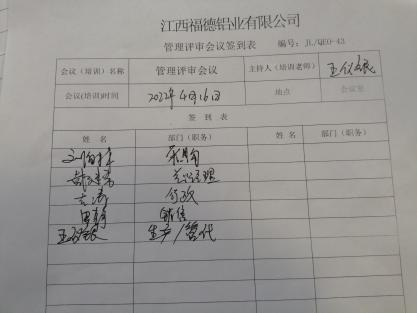 江西福德铝业有限公司
管理评审会议签到表 编号：JL/QEO-43
会议（培训）名称 管理评审会议 主持人（培训老师）
会议(培训)时间 2022年4月16日 地点 会议室
签到表
姓名 部门（职务） 姓名 部门（职务）
采购
总经理
行政
销售
生产/管代